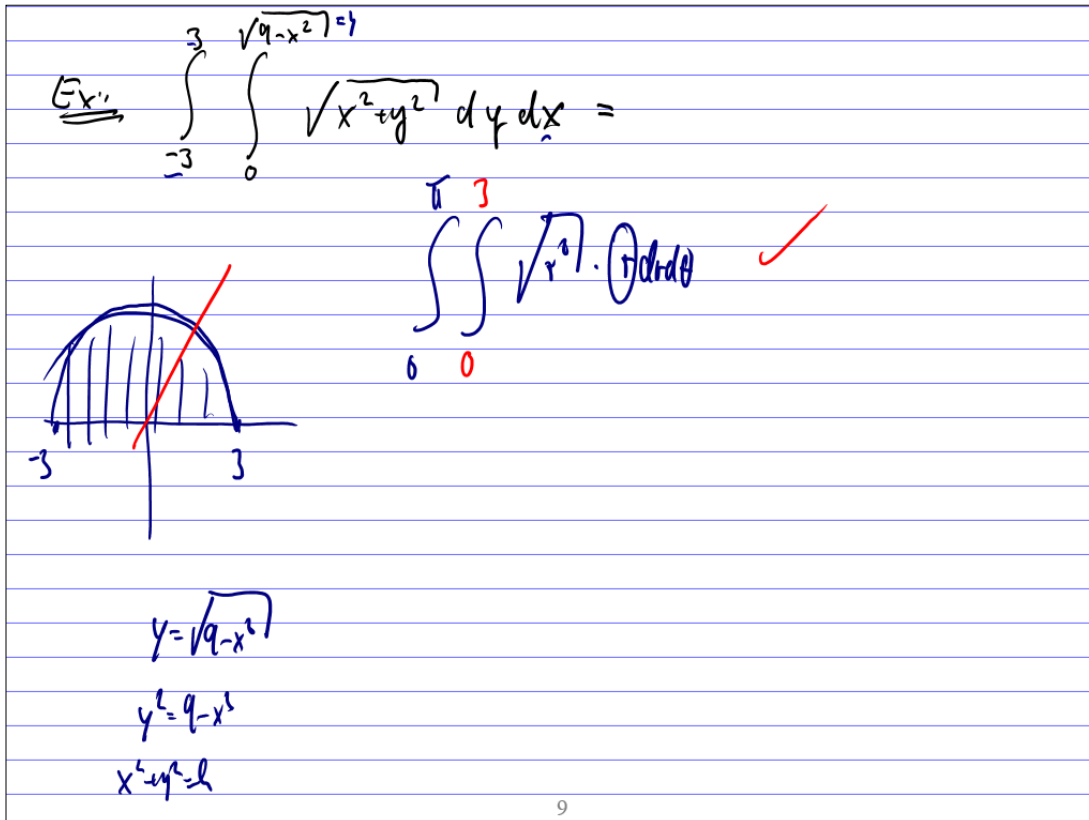 Ex: ∫_{-3}^{3} ∫_{0}^{√(9-x²) = y} √(x²+y²) dy dx =
∫_{0}^{π} ∫_{0}^{3} √(r²) · r dr dθ ✓
-3 3
y = √(9-x²)
y² = 9-x²
x²+y²=9
9